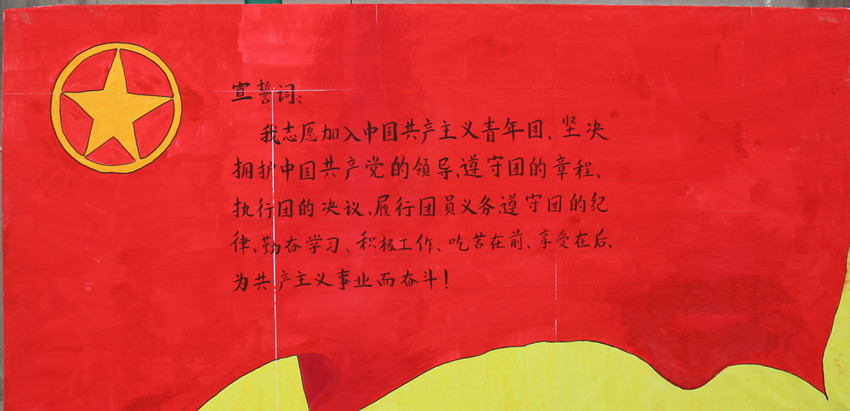 宣誓词:
我志愿加入中国共产主义青年团、坚决
拥护中国共产党的领导、遵守团的章程、
执行团的决议、履行团员义务、遵守团的纪
律、勤奋学习、积极工作、吃苦在前、享受在后、
为共产主义事业而奋斗!